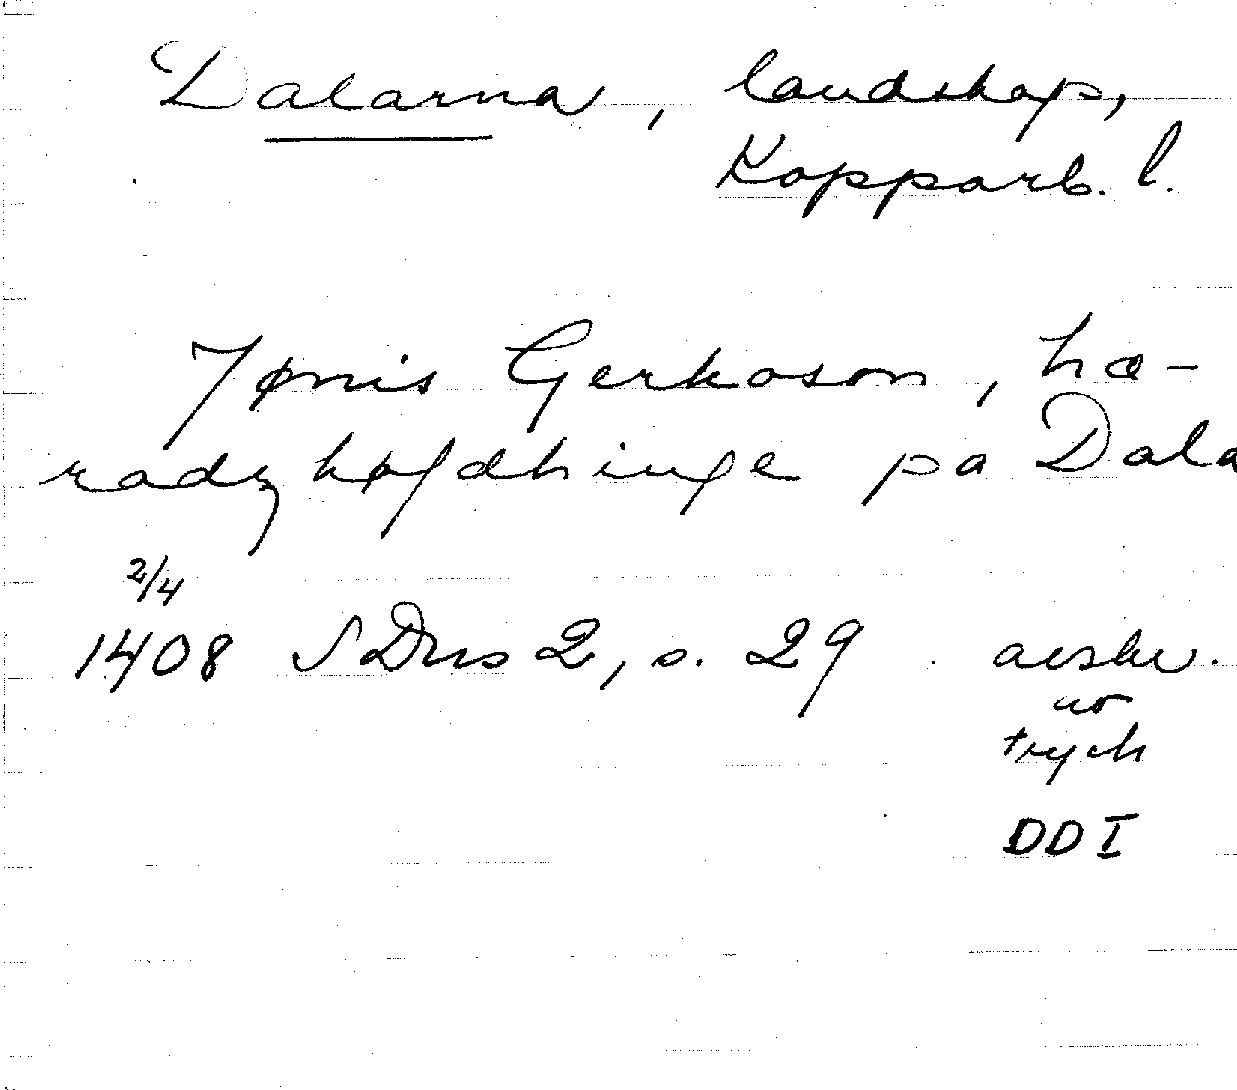 Dalarna, landskap,
Kopparb. l.
Jønis Gerkoson, hæ-
radz høfdhinge pa Dala
2/4
1408 SDns 2, s. 29 avskr.
av
tryck
DD I